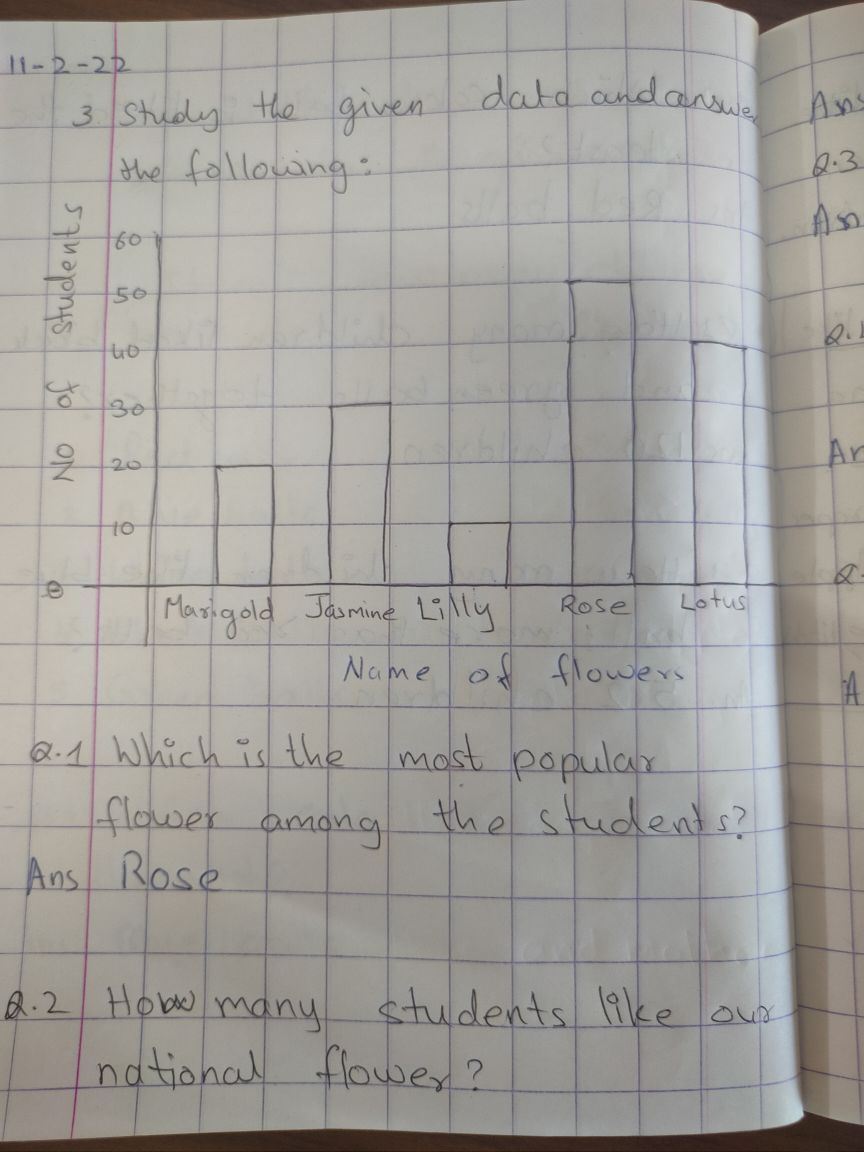 11-2-22
3 Study the given data and answe
the following:
No of students
60
50
40
30
20
10
0
Marigold Jasmine Lilly Rose Lotus
Name of flowers
Q.1 Which is the most popular
flower among the students?
Ans Rose
Q.2 How many students like our
national flower?
Ans
Q.3
An
Q.
Ar
Q.
A